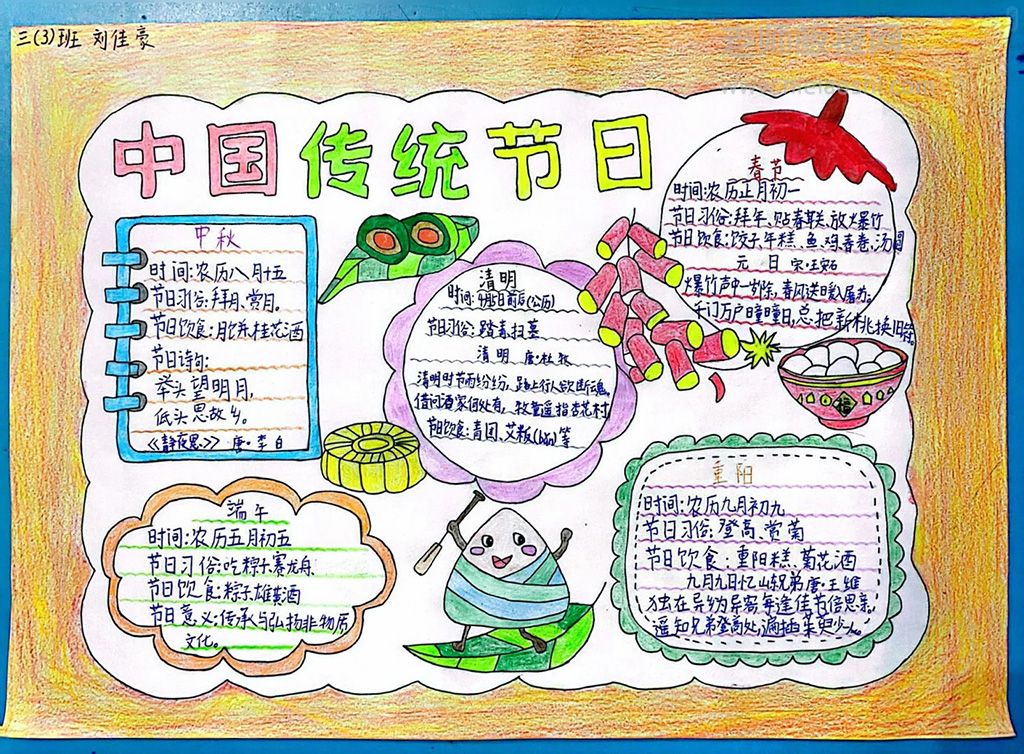 三(3)班 刘佳豪
中国传统节日
中秋
时间:农历八月十五
节日习俗:拜月、赏月。
节日饮食:月饼、桂花酒
节日诗句:
举头望明月,
低头思故乡。
《静夜思》 唐·李白
清明
时间:4月5日前后(公历)
节日习俗:踏青、扫墓
清明 唐·杜牧
清明时节雨纷纷,路上行人欲断魂。
借问酒家何处有,牧童遥指杏花村
节日饮食:青团、艾粄(bǎn)等
春节
时间:农历正月初一
节日习俗:拜年、贴春联、放爆竹
节日饮食:饺子、年糕、鱼、鸡、春卷、汤圆
元日 宋·王安石
爆竹声中一岁除,春风送暖入屠苏。
千门万户曈曈日,总把新桃换旧符。
福
端午
时间:农历五月初五
节日习俗:吃粽子、赛龙舟
节日饮食:粽子、雄黄酒
节日意义:传承与弘扬非物质
文化。
重阳
时间:农历九月初九
节日习俗:登高、赏菊
节日饮食:重阳糕、菊花酒
九月九日忆山东兄弟 唐·王维
独在异乡为异客,每逢佳节倍思亲。
遥知兄弟登高处,遍插茱萸少一人。